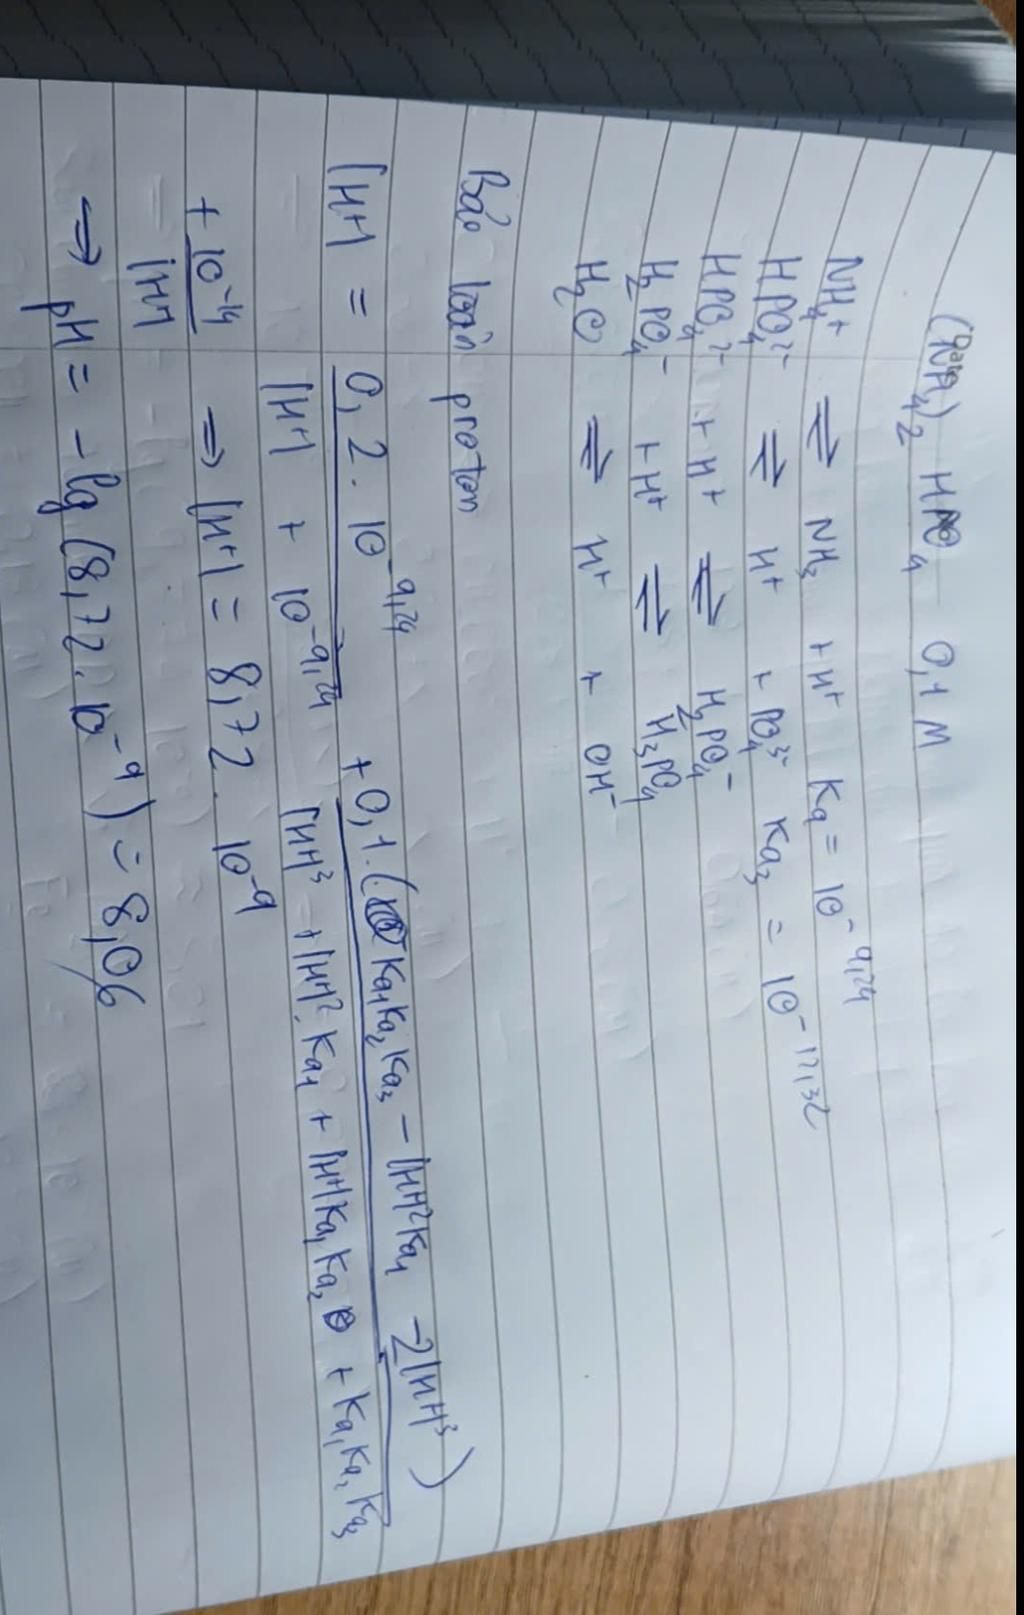 (NH4)2 HPO4 0,1 M
NH4+ ⇌ NH3 + H+ Ka = 10^-9,24
HPO4^2- ⇌ H+ + PO4^3- Ka3 = 10^-12,32
HPO4^2- + H+ ⇌ H2PO4^-
H2PO4^- + H+ ⇌ H3PO4
H2O ⇌ H+ + OH-
Bảo toàn proton
[H+] = 0,2. 10^-9,24 / [H+] + 10^-9,24 + 0,1.(Ka1Ka2Ka3 - [H+]^2Ka1 - 2[H+]^3) / [H+]^3 + [H+]^2.Ka1 + [H+]Ka1Ka2 + Ka1Ka2Ka3
+ 10^-14 / [H+] ⇒ [H+] = 8,72. 10^-9
⇒ pH = -lg (8,72. 10^-9) = 8,06